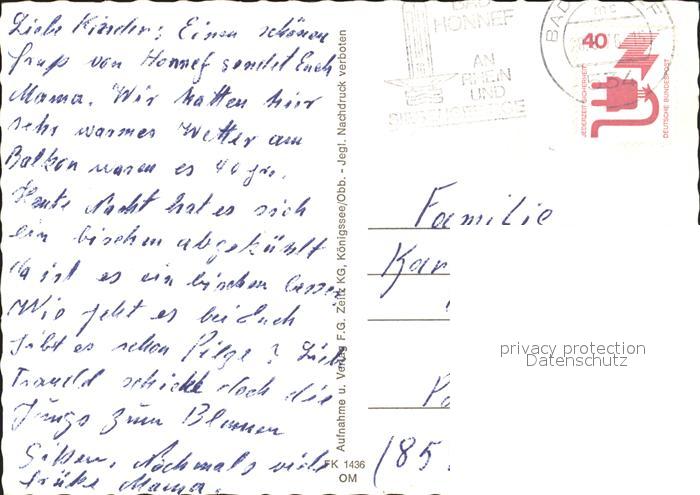 Liebe Kinder! Einen schönen
Gruß von Honnef sendet Euch
Mama. Wir hatten hier
sehr warmes Wetter am
Balkon waren es 40 gr.
Heute Nacht hat es sich
ein bischen abgekühlt
da ist es ein bischen besser
Wie geht es bei Euch
gibt es schon Pilze? Liebe
Traudl schicke doch die
Jungs zum Blumen
gißen. Nochmals viele
Grüße Mama.
Aufnahme u. Verlag F.G. Zeitz KG, Königssee/Obb. - Jegl. Nachdruck verboten
FK 1436
OM
BAD
HONNEF
AN
RHEIN
UND
SIEBENGEBIRGE
BAD
534
40
JEDERZEIT SICHERHEIT
DEUTSCHE BUNDESPOST
Familie
Kar
(85
privacy protection
Datenschutz